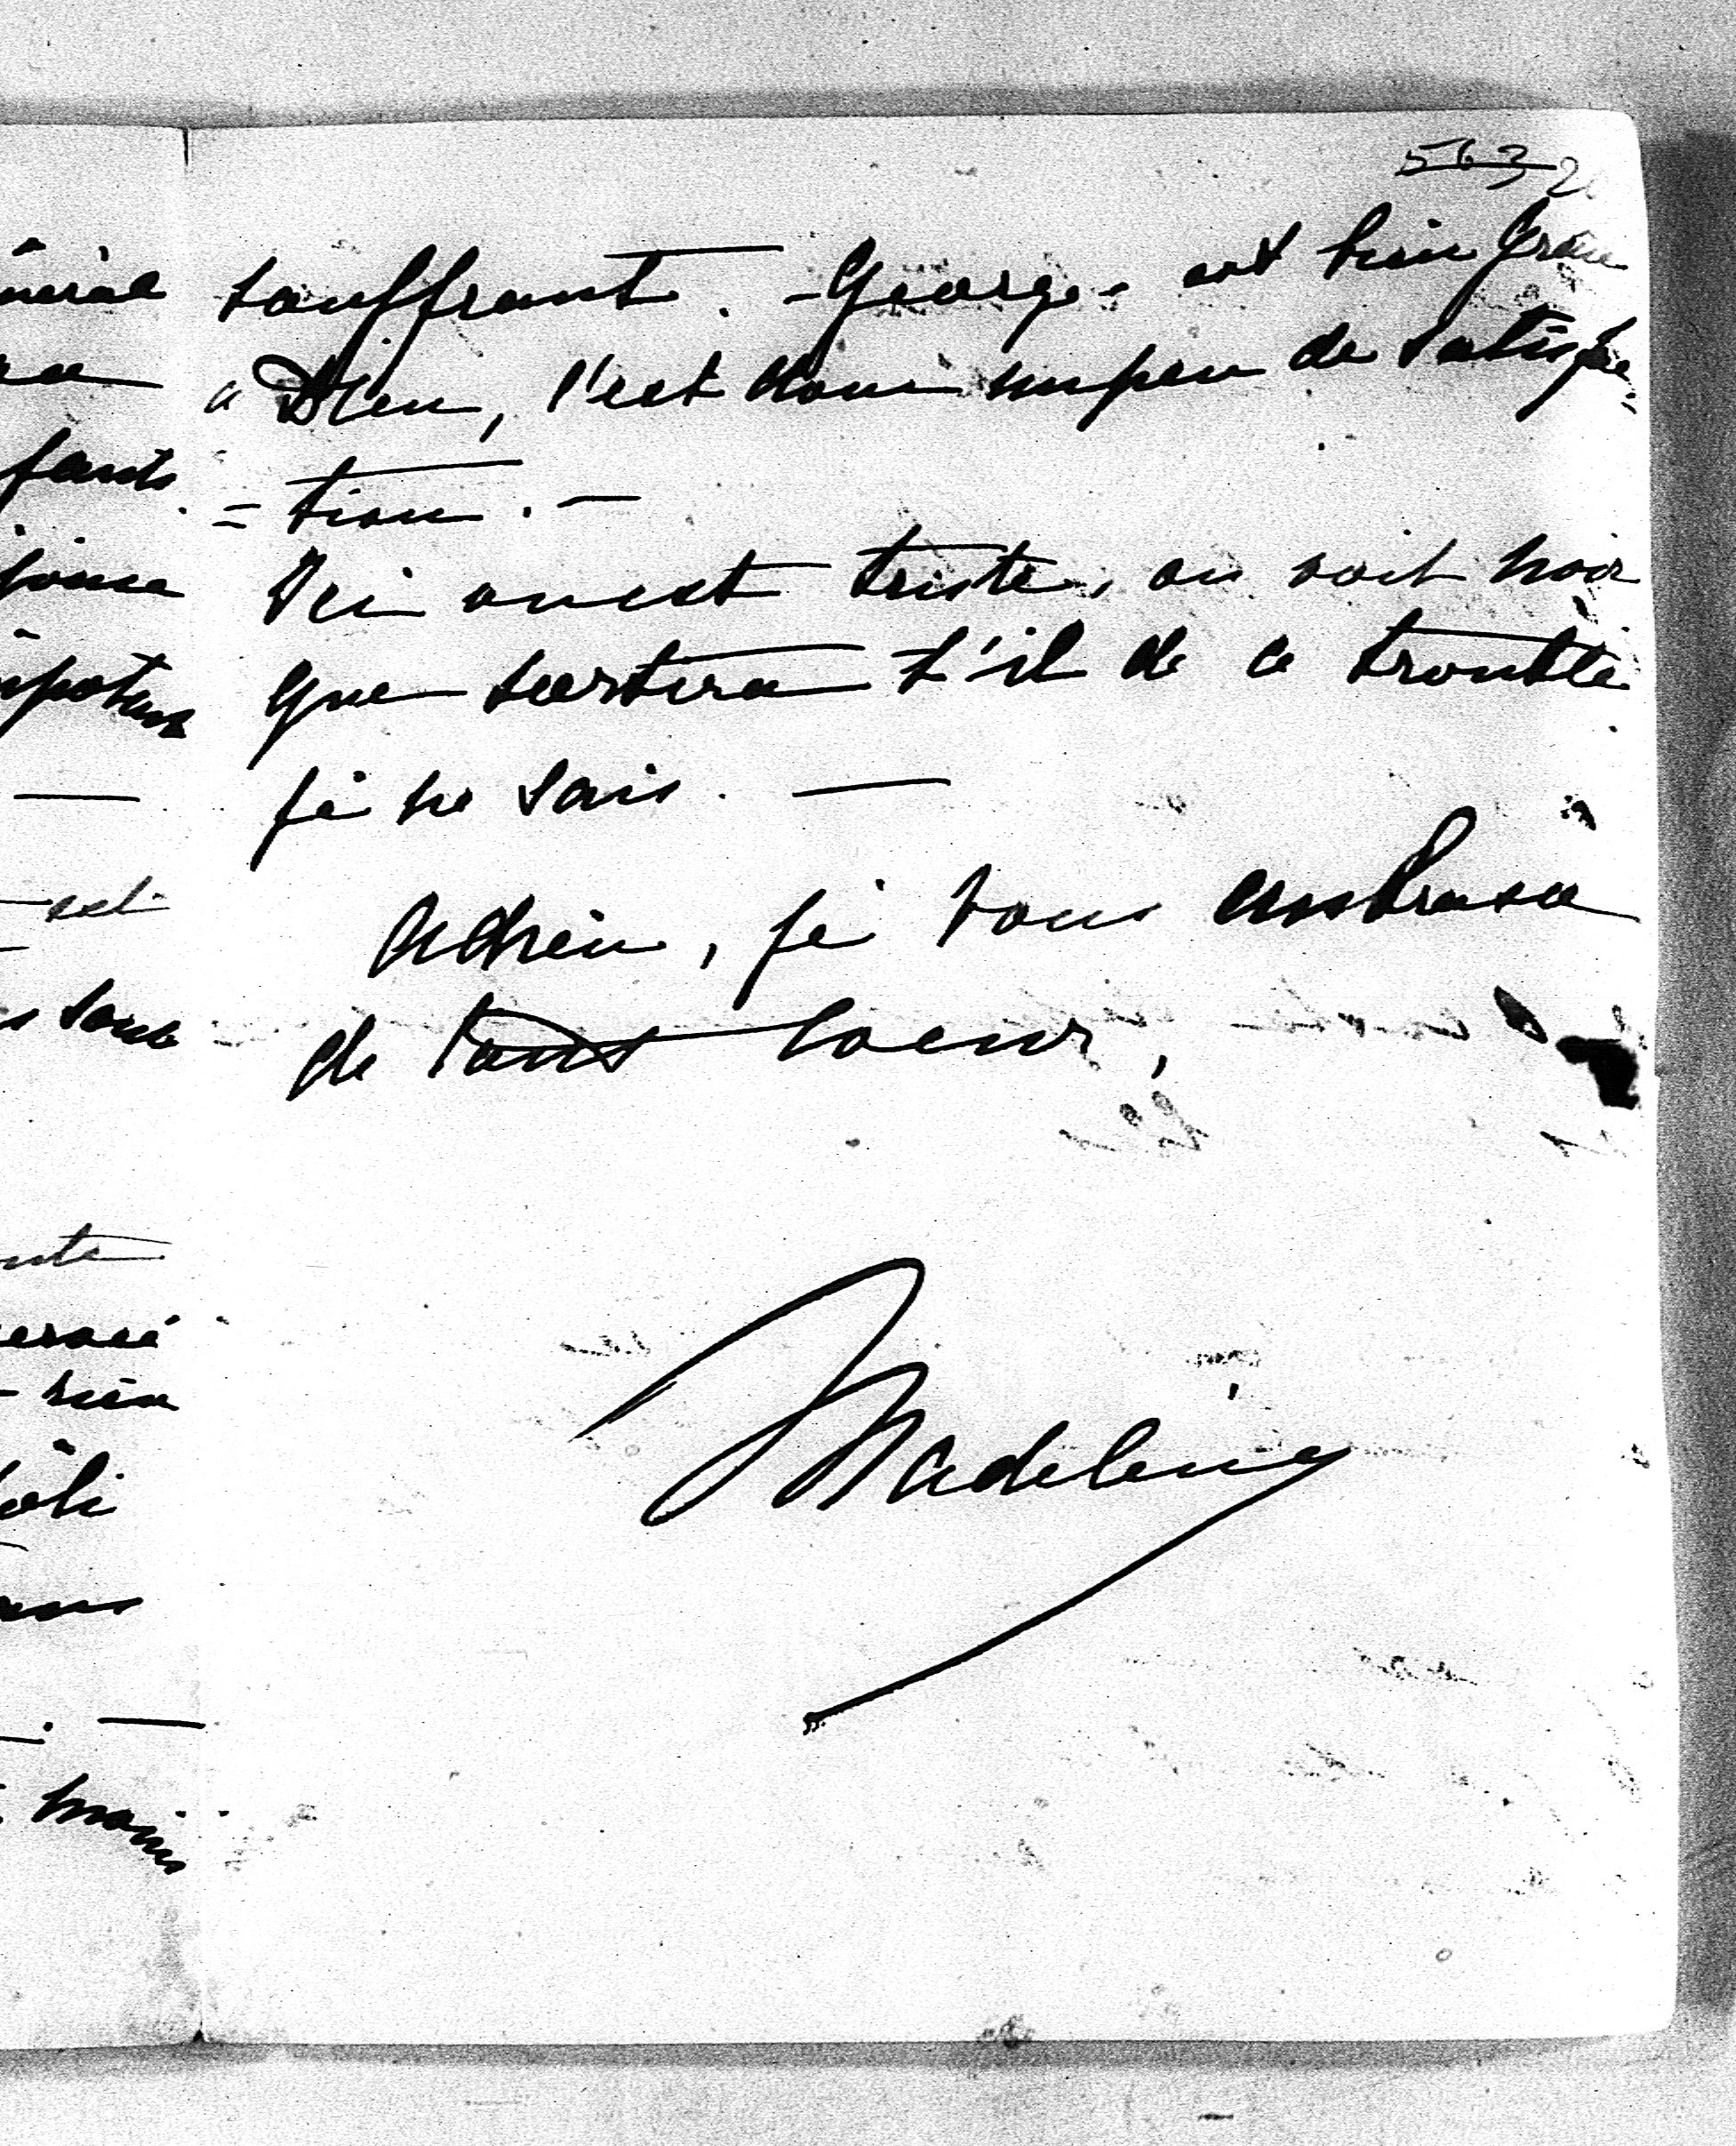 563
souffrant. - George - est bien grâce
a Dieu, c'est donc un peu de satisfac
= tion. —
Ici on est triste, on voit noir
que sortira t'il de ce trouble
je ne sais. —
Adieu, je vous embrasse
de tout coeur,
Madeleine
fants.
mpotent
—
est
sont
rien
joli
. —
moins